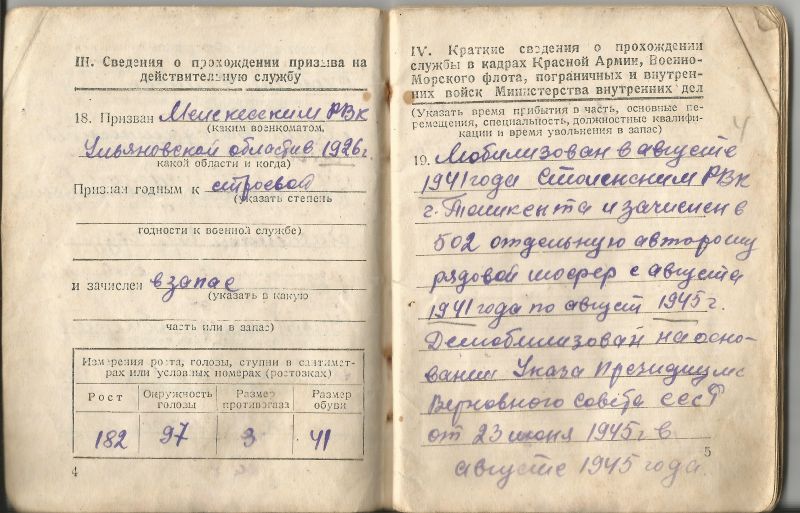 III. Сведения о прохождении призыва на
действительную службу
18. Призван Мелекесским РВК
(каким военкоматом,
Ульяновской области в 1926 г.
какой области и когда)
Признан годным к строевой
(указать степень
годности к военной службе)
и зачислен в запас
(указать в какую
часть или в запас)
Измерения роста, головы, ступни в сантимет-
рах или условных номерах (ростовках)
Рост Окружность головы Размер противогаза Размер обуви
182 97 3 41
4
IV. Краткие сведения о прохождении
службы в кадрах Красной Армии, Военно-
Морского флота, пограничных и внутрен-
них войск Министерства внутренних дел
(Указать время прибытия в часть, основные пе-
ремещения, специальность, должностные квалифи-
кации и время увольнения в запас)
4
19. Мобилизован в августе
1941 года Сталинским РВК
г. Ташкента и зачислен в
502 отдельную автороту
рядовой шофер с августа
1941 года по август 1945 г.
Демобилизован на осно-
вании Указа Президиума
Верховного Совета СССР
от 23 июня 1945 г. в
августе 1945 года.
5